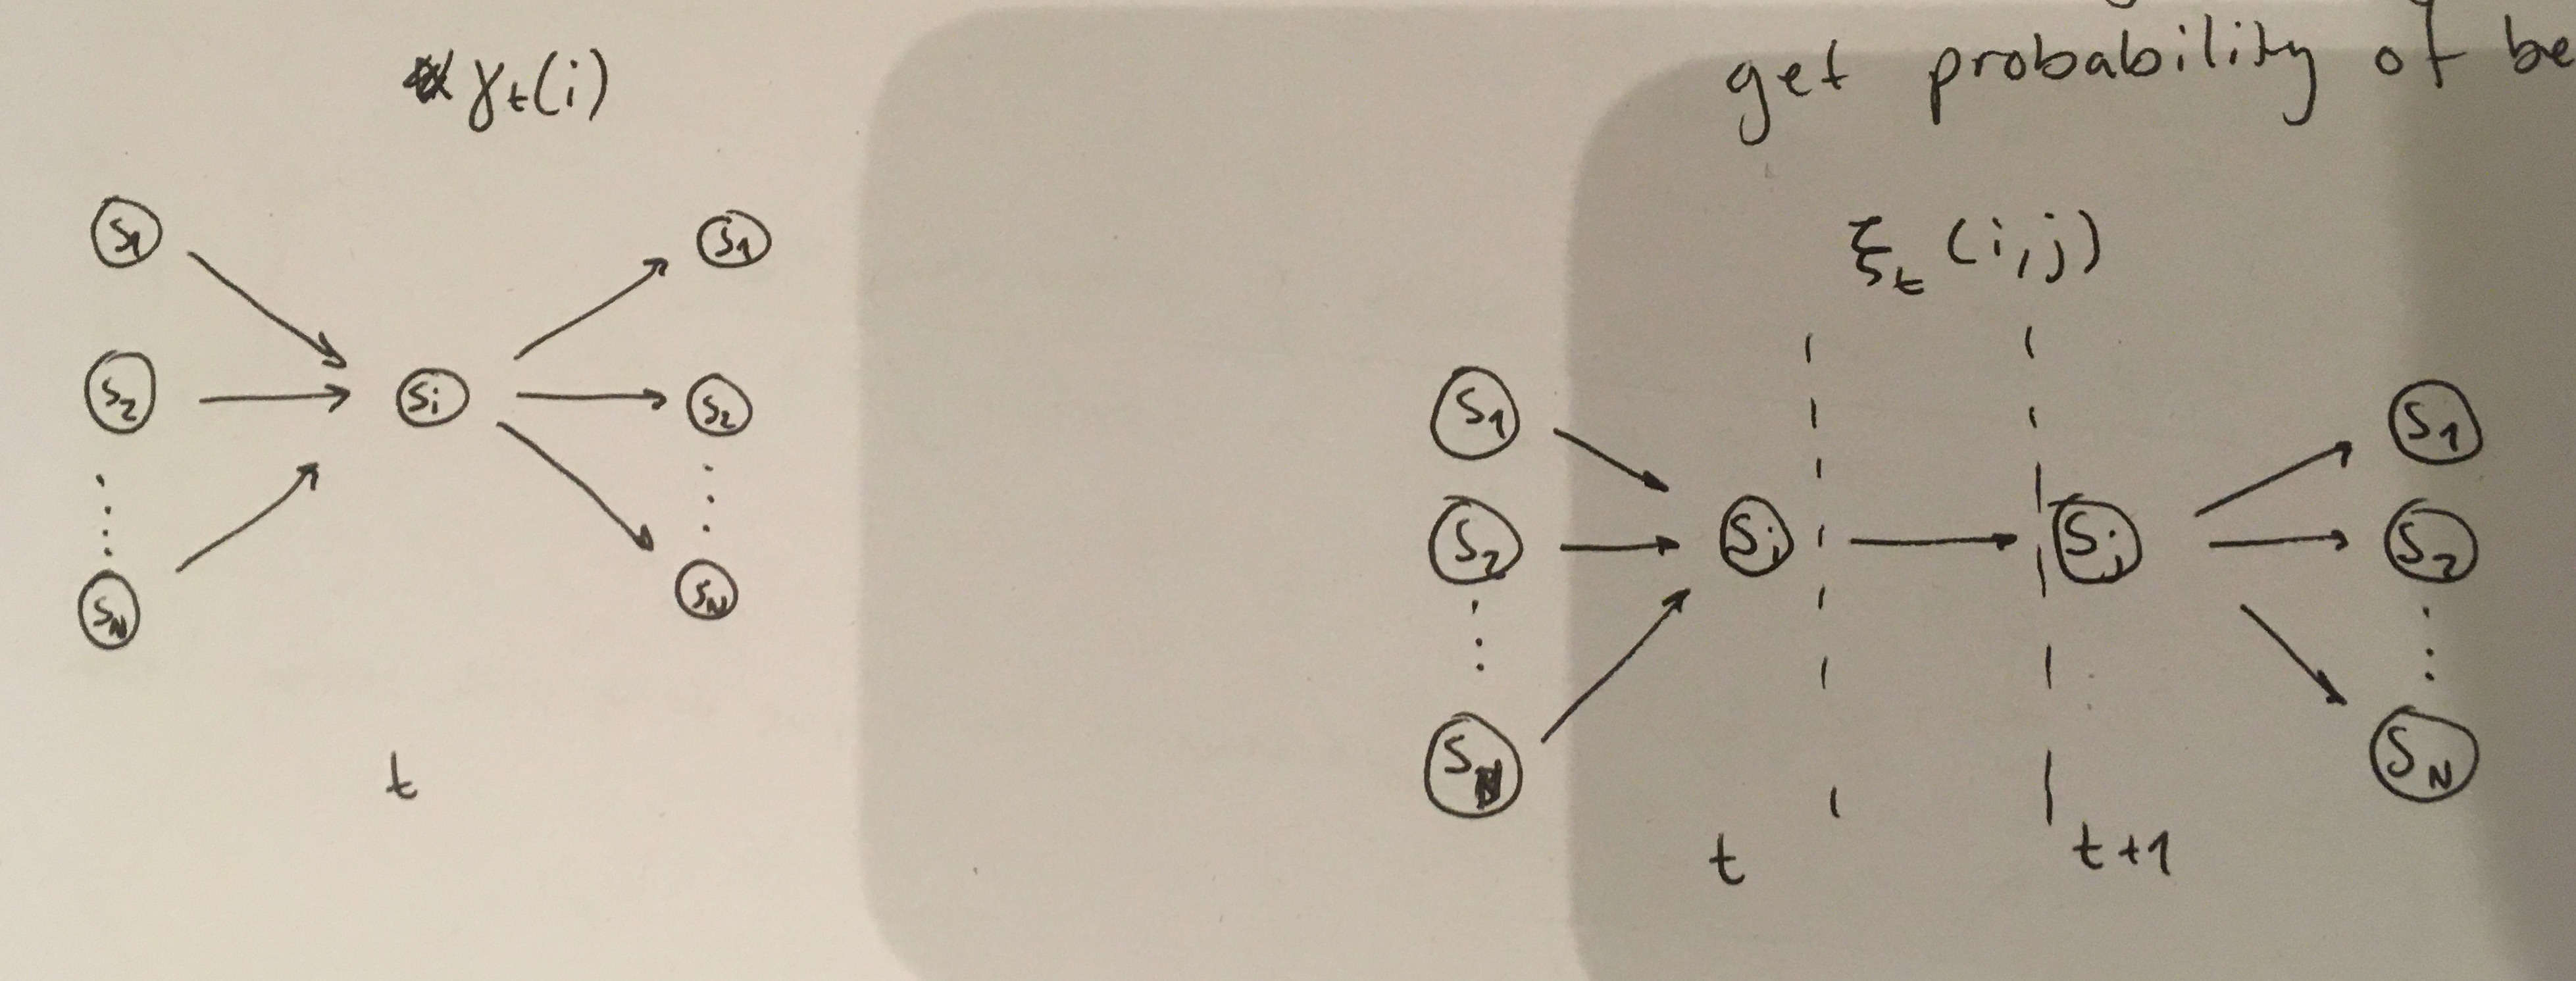 γt(i)
S1
S2
SN
Si
S1
S2
SN
t
get probability of be
ξt (i,j)
S1
S2
SN
Si
Sj
S1
S2
SN
t
t+1